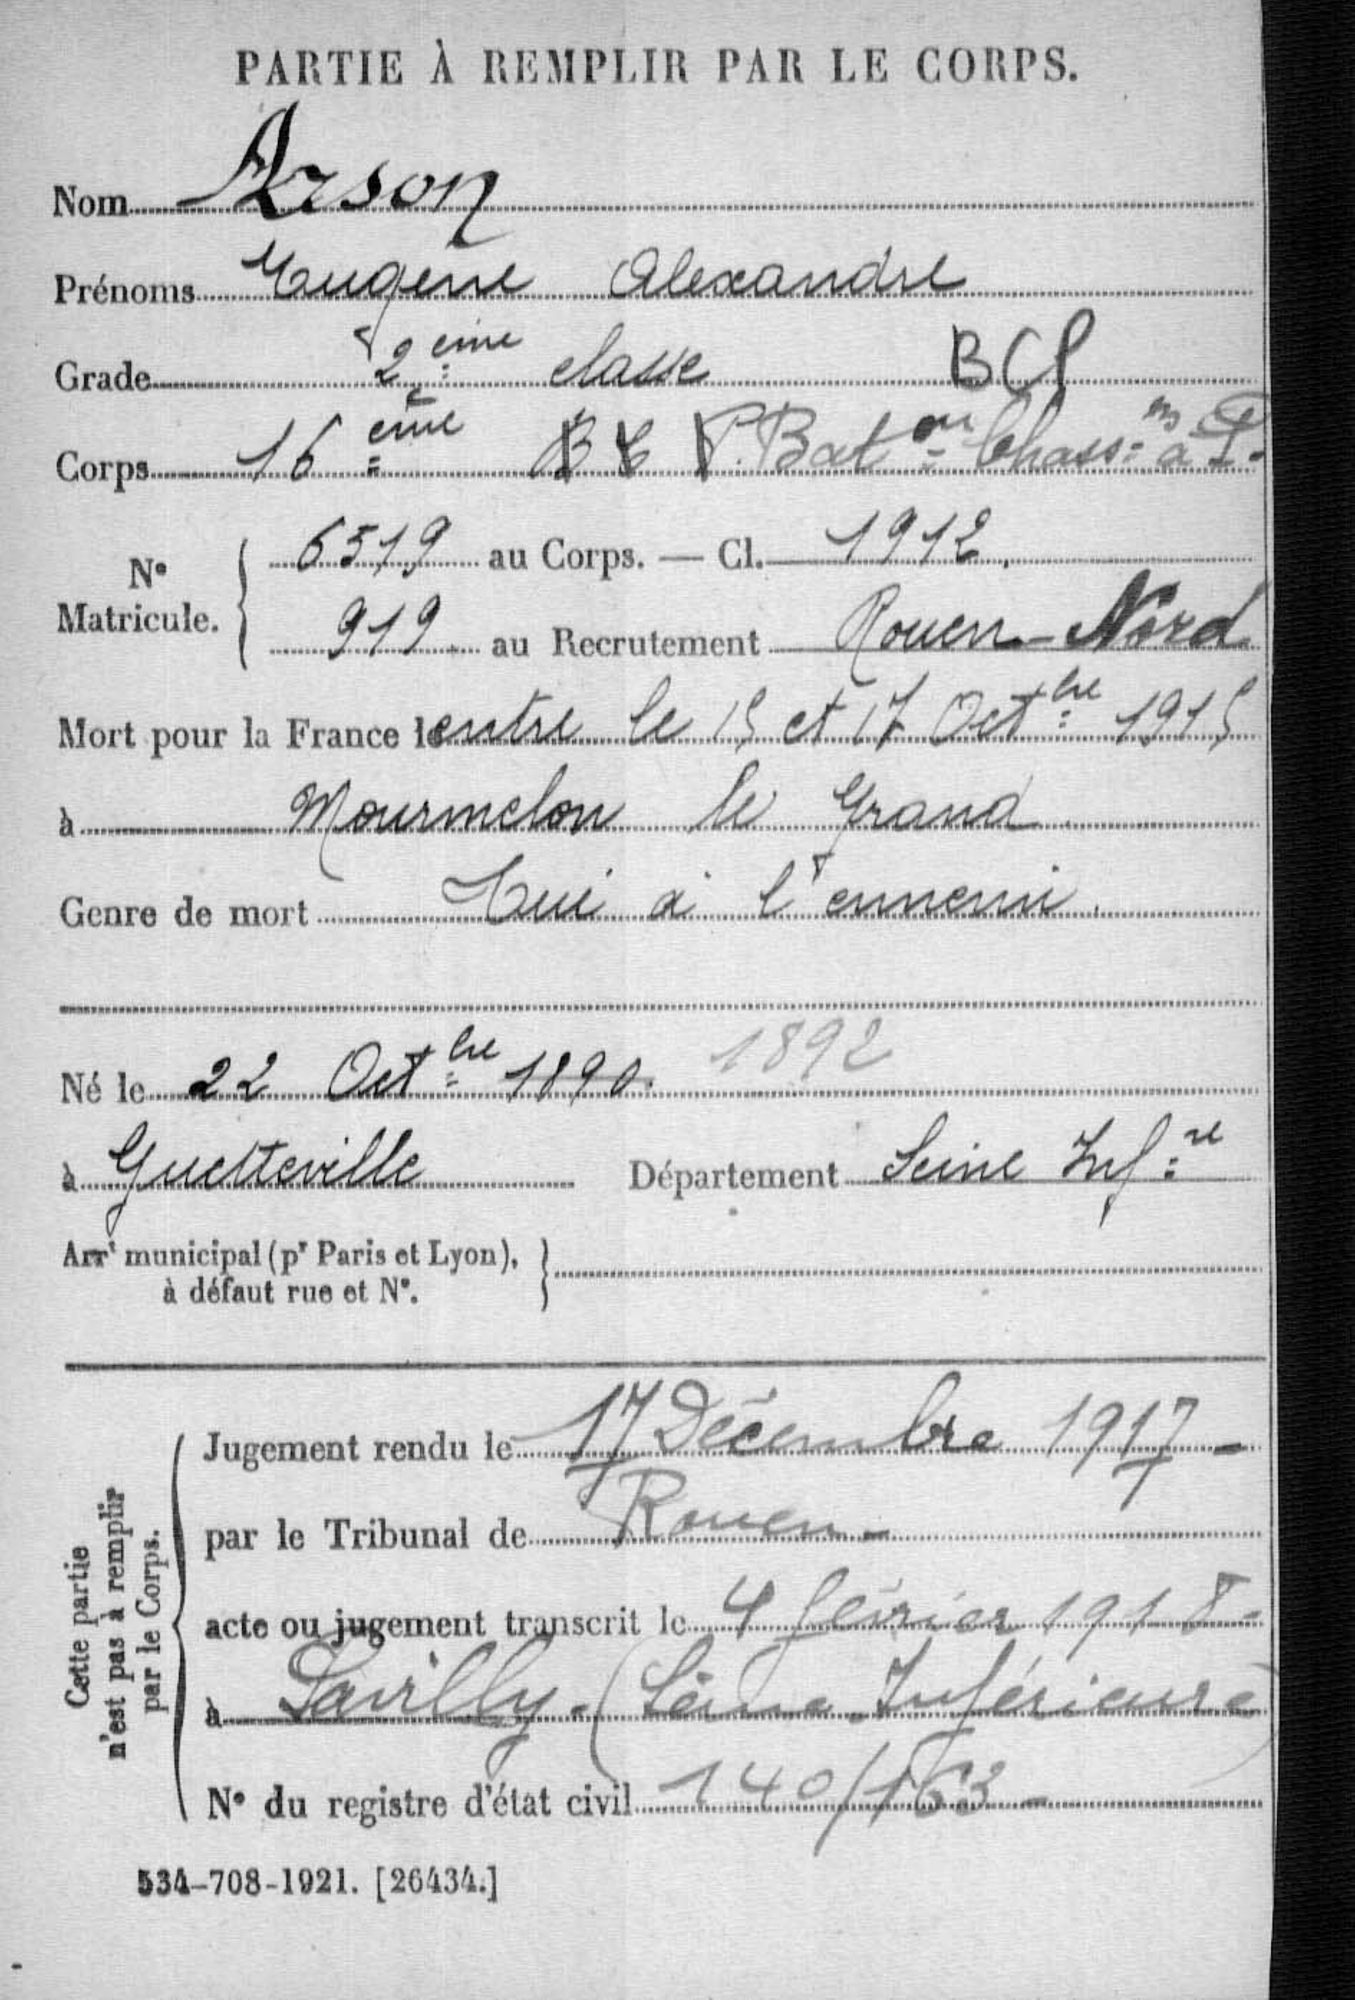 PARTIE À REMPLIR PAR LE CORPS.
Nom Arson
Prénoms Eugène Alexandre
Grade 2ème classe BCP
Corps 16ème B C P. Baton Chass=rs à P.
N° Matricule. 6319 au Corps. — Cl. 1912.
919 au Recrutement Rouen-Nord
Mort pour la France le entre le 15 et 17 Octbre 1915
à Mourmelon le Grand
Genre de mort Tué à l'ennemi.
Né le 22 Octbre 1890. 1892
à Guetteville Département Seine Infre
Arrt municipal (pr Paris et Lyon),
à défaut rue et N°.
Cette partie n'est pas à remplir par le Corps.
Jugement rendu le 17 Décembre 1917 -
par le Tribunal de Rouen -
acte ou jugement transcrit le 4 février 1918 -
à Pavilly - (Seine-Inférieure)
N° du registre d'état civil 140/163 -
534-708-1921. [26434.]